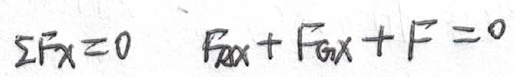 ΣFx=0 FRx+FGx+F=0